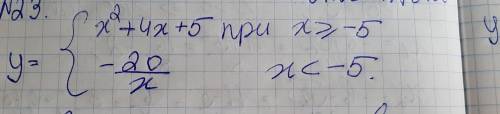 №23.
y = { x²+4x+5 при x ≥ -5
-20/x x < -5.
y